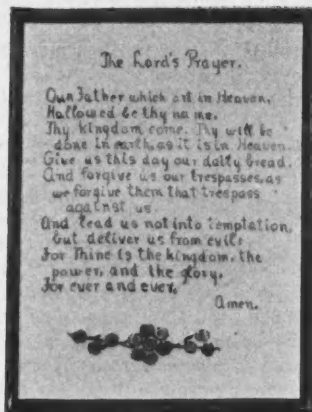 The Lord's Prayer.
Our Father which art in Heaven,
Hallowed be thy name.
Thy kingdom come. Thy will be
done in earth, as it is in Heaven
Give us this day our daily bread.
And forgive us our trespasses, as
we forgive them that trespass
against us.
And lead us not into temptation,
but deliver us from evil:
For Thine is the kingdom, the
power, and the glory,
For ever and ever,
Amen.